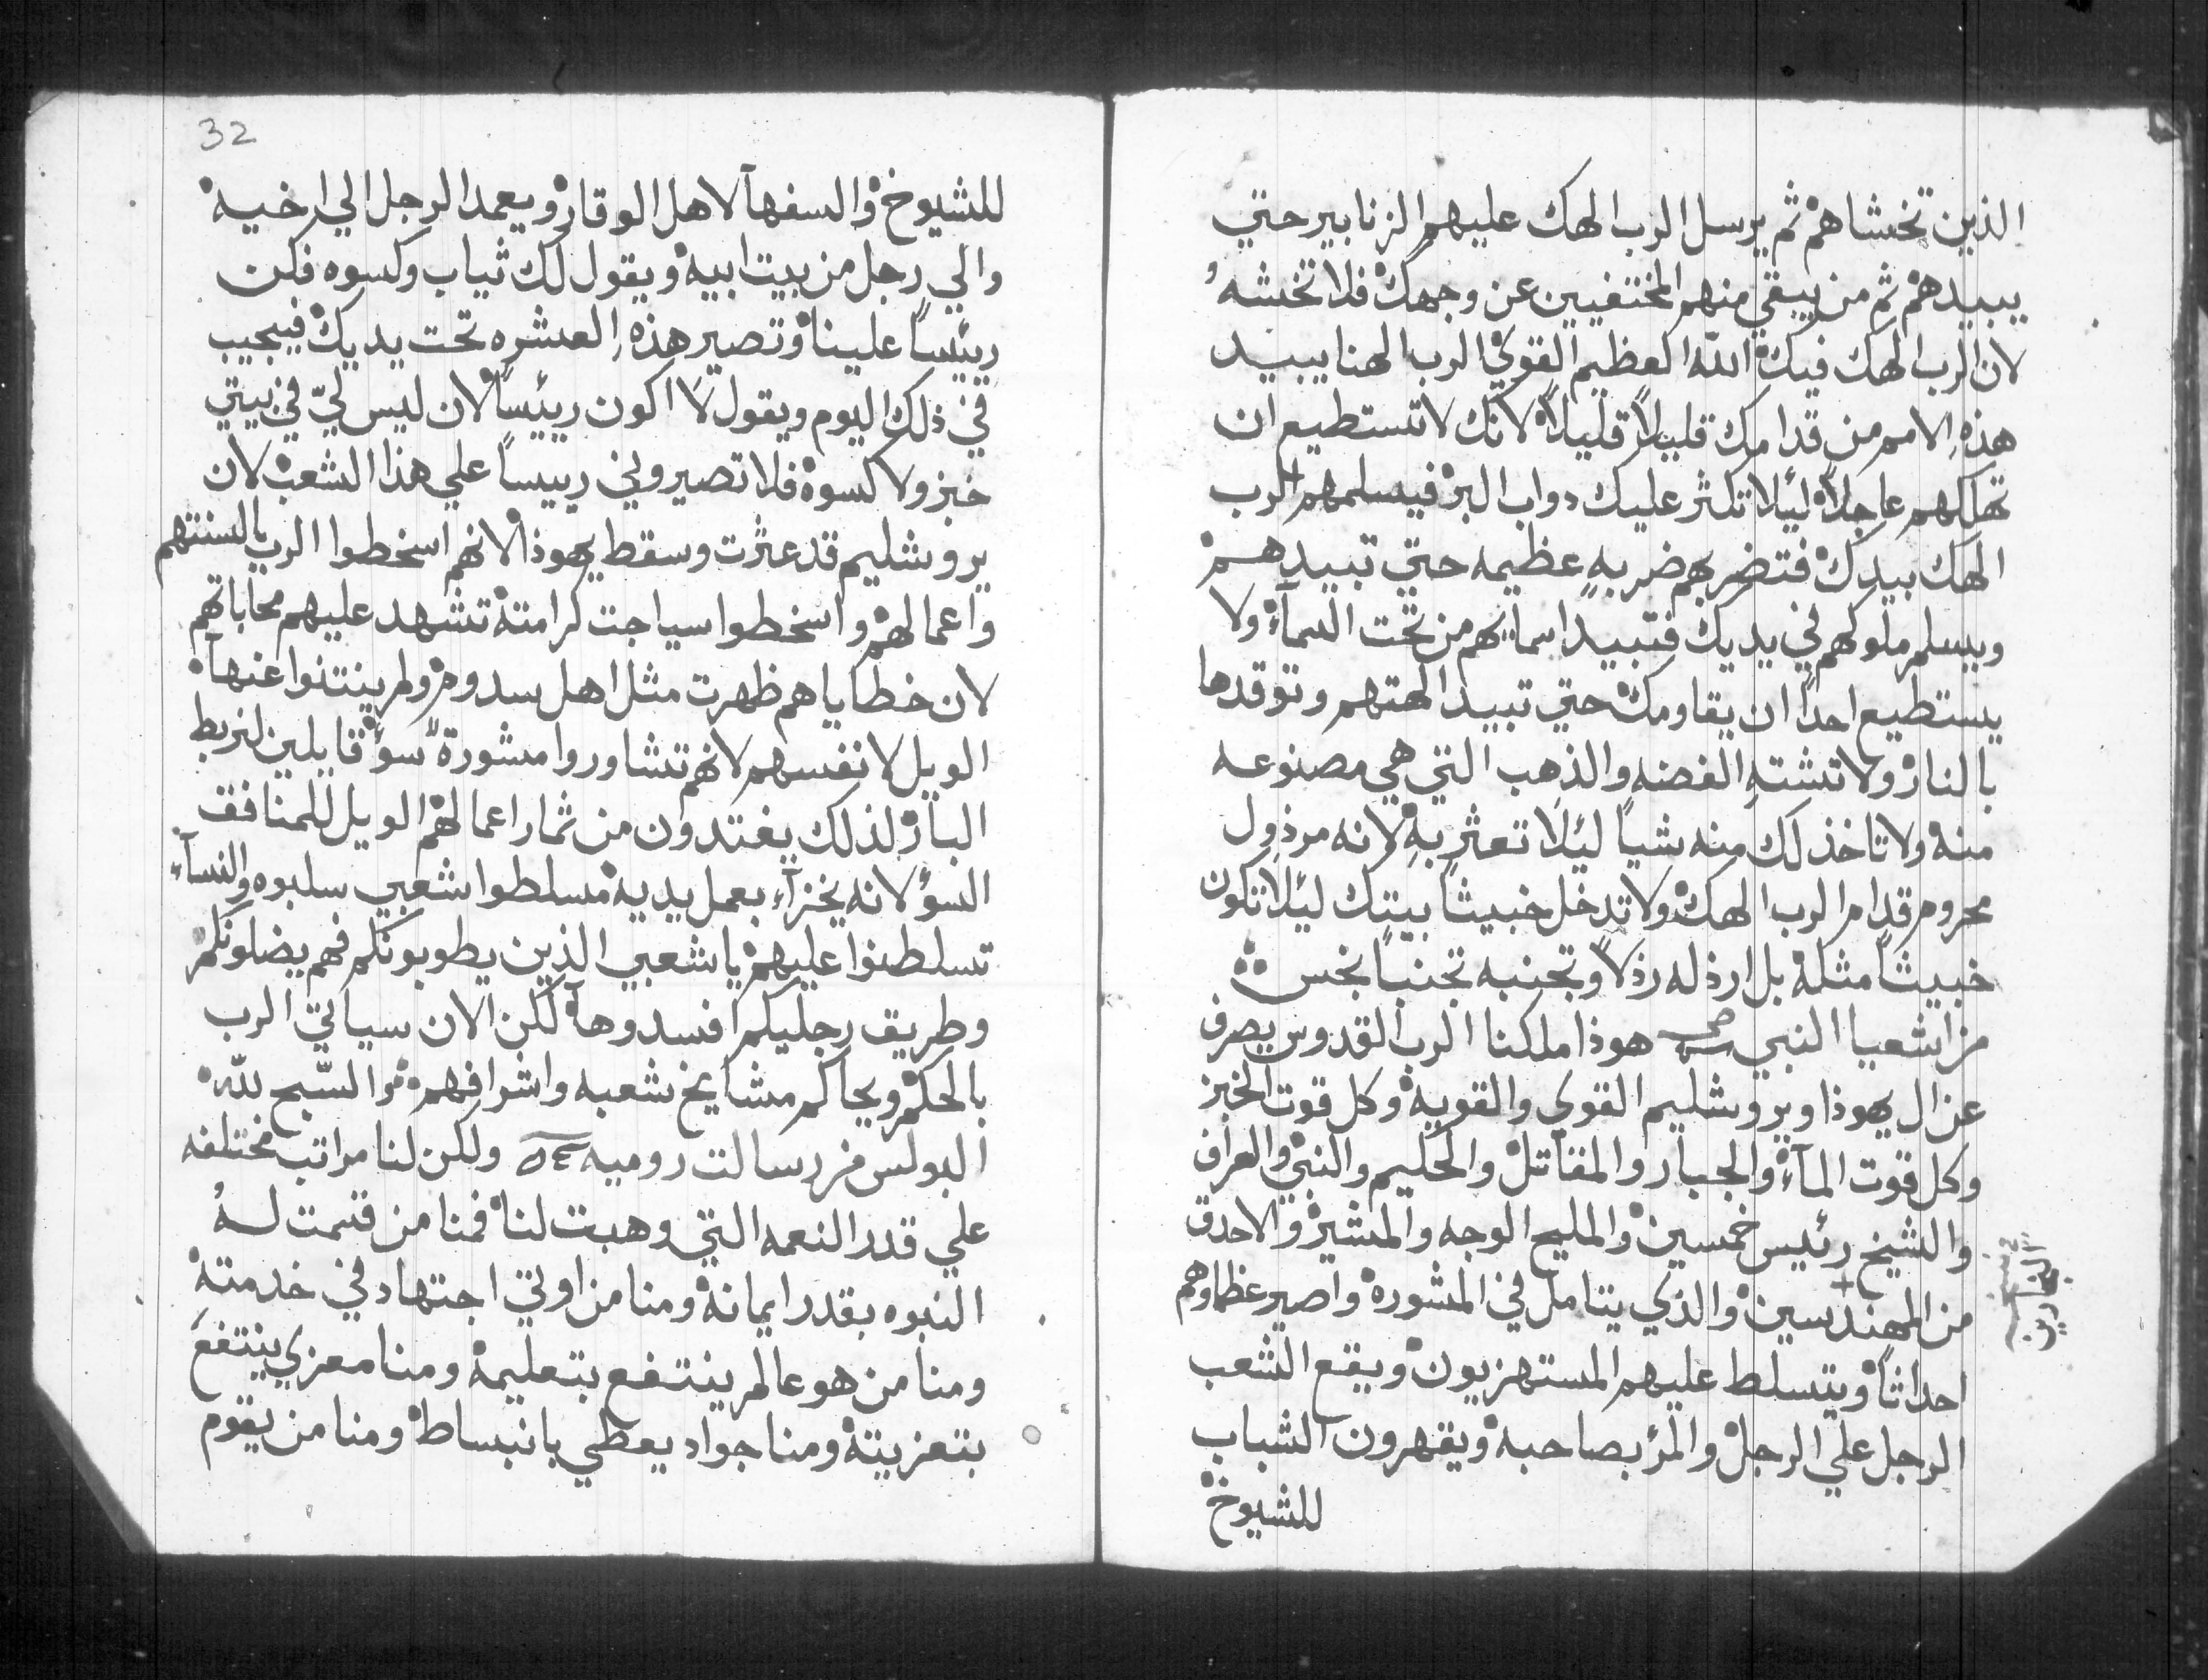 الذين تخشاهم ثم يرسل الرب الهك عليهم الزنابير حتي
يبيدهم ثم من يبقي منهم المختفيين عن وجهك فلا تخشهُ
لان الرب الهك فيك الله العظيم القوي الرب الهنا يبيد
هذهِ الامم من قدامك قليلاً قليلاً لانك لا تستطيع ان
تهلكهم عاجلاً ليلا تكثر عليك دواب البر فيسلمهم الرب
الهك بيدك فتضربهم ضربهٍ عظيمه حتي تبيدهم
ويسلم ملوكهم في يديك فتبيد اسمايهم من تحت السمآء ولا
يستطيع احداً ان يقاومك حتي تبيد الهتهم وتوقدها
بالنار ولا تشتهِ الفضه والذهب التي هي مصنوعه
منه ولا تاخذ لك منه شياً ليلا تعثر بهِ لانه مرذول
محروم قدام الرب الهك ولا تدخل خبيثاً بيتك ليلا تكون
خبيثاً مثله بل ارذله رذلاً وتجنبه تجنباً نجس
من اشعيا النبي هوذا ملكنا الرب القدوس يصرف
عن ال يهوذا ويروشليم القوي والقويه وكل قوت الخبز
وكل قوت المآء والجبار والمقاتل والحكيم والنبي والعراف
والشيخ رئيس خمسين والمليح الوجه والمشير والاحدق
من المهندسين والذي يتامل في المشوره واصير عظماوهم
احداثاً ويتسلط عليهم المستهزيون ويقع الشعب
الرجل علي الرجل والمرء بصاحبه ويقهرون الشباب
للشيوخ
النجارين
32
للشيوخ والسفهآ لاهل الوقار ويعمد الرجل الي اخيه
والي رجل من بيت ابيه ويقول لك ثياب وكسوه فكن
رييساً علينا وتصير هذهِ العشره تحت يديك فيجيب
في ذلك اليوم ويقول لا اكون رييساً لان ليس ليّ في بيتي
خبز ولا كسوه فلا تصيروني رييساً علي هذا الشعب لان
يروشليم قد عثرت وسقط يهوذا لانهم اسخطوا الرب بالسنتهم
واعمالهم واسخطوا سياجت كرامته تشهد عليهم محاباتهم
لان خطاياهم ظهرت مثل اهل سدوم ولم ينتنوا عنهآ
الويل لانفسهم لانهم تشاوروا مشورة سوء قايلين لنربط
البار لذلك يغتدون من ثمار اعمالهم الويل للمنافق
السؤ لانه يخزآء بعمل يديه مسلطوا شعبي سلبوه والنسآء
تسلطنوا عليهم يا شعبي الذين يطوبونكم فهم يضلونكم
وطريق رجليكم افسدوهآ لكن الان سياتي الرب
بالحكم ويحاكم مشايخ شعبه واشرافهم والسّبح للّه
البولس من رسالت روميه ولكن لنا مراتب مختلفه
علي قدر النعمه التي وهبت لنا فمنا من قسمت لهُ
النبوه بقدر ايمانه ومنا من اوتي اجتهاد في خدمته
ومنا من هو عالم ينتفع بتعليمه ومنا معزي ينتفع
بتعزيته ومنا جواد يعطي بانبساط ومنا من يقوم